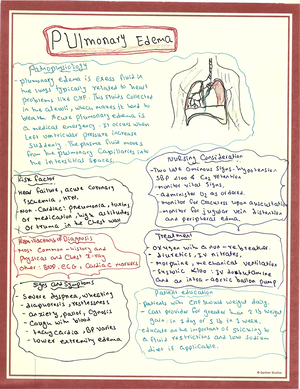 PULmonary Edema
Pathophysiology
- pulmonary edema is excess fluid in
the lungs typically related to heart
problems like CHF. This fluids collected
in the alveoli, which makes it hard to
breath. Acute pulmonary edema is
a medical emergency. It occurs when
Left ventricular pressure increase
suddenly. The plasma fluid moves
from the pulmonary Capillaries into
the Interstitial spaces.
Nursing Consideration
- Two late ominous signs: hypotension
SBP <100 & CO2 retention
- monitor vital signs,
- administer O2 as ordered.
- monitor for crackles upon auscultation
- monitor for jugular vein distention
and peripheral edema.
Risk Factor
Heart failure, acute coronary
Ischemia, HTN.
Non-Cardiac: pneumonia, toxins
or medication, high altitudes
or trauma to the chest wall
Treatment
- Oxygen with a non-rebreather
- diuretics, IV nitrates,
- Morphine, mechanical ventilation
- Systolic <100: IV dobutamine
and an intra-aortic balloon pump
Most common: history and
Physical and Chest X-ray
other: BNP, ECG, Cardiac markers
Signs and Symptoms
- Severe dyspnea, wheezing
- diaphoresis, restlessness
- anxiety, panic, cyanosis
- Cough with blood
- tachycardia, BP varies
- lower extremity edema
Patient education
- patients with CHF should weight daily.
- Call provider for greater than 2 lb weight
gain in 1 day or 5 lb in 1 week.
- educate on the important of sticking to
a fluid restrictions and low sodium
diet is applicable.